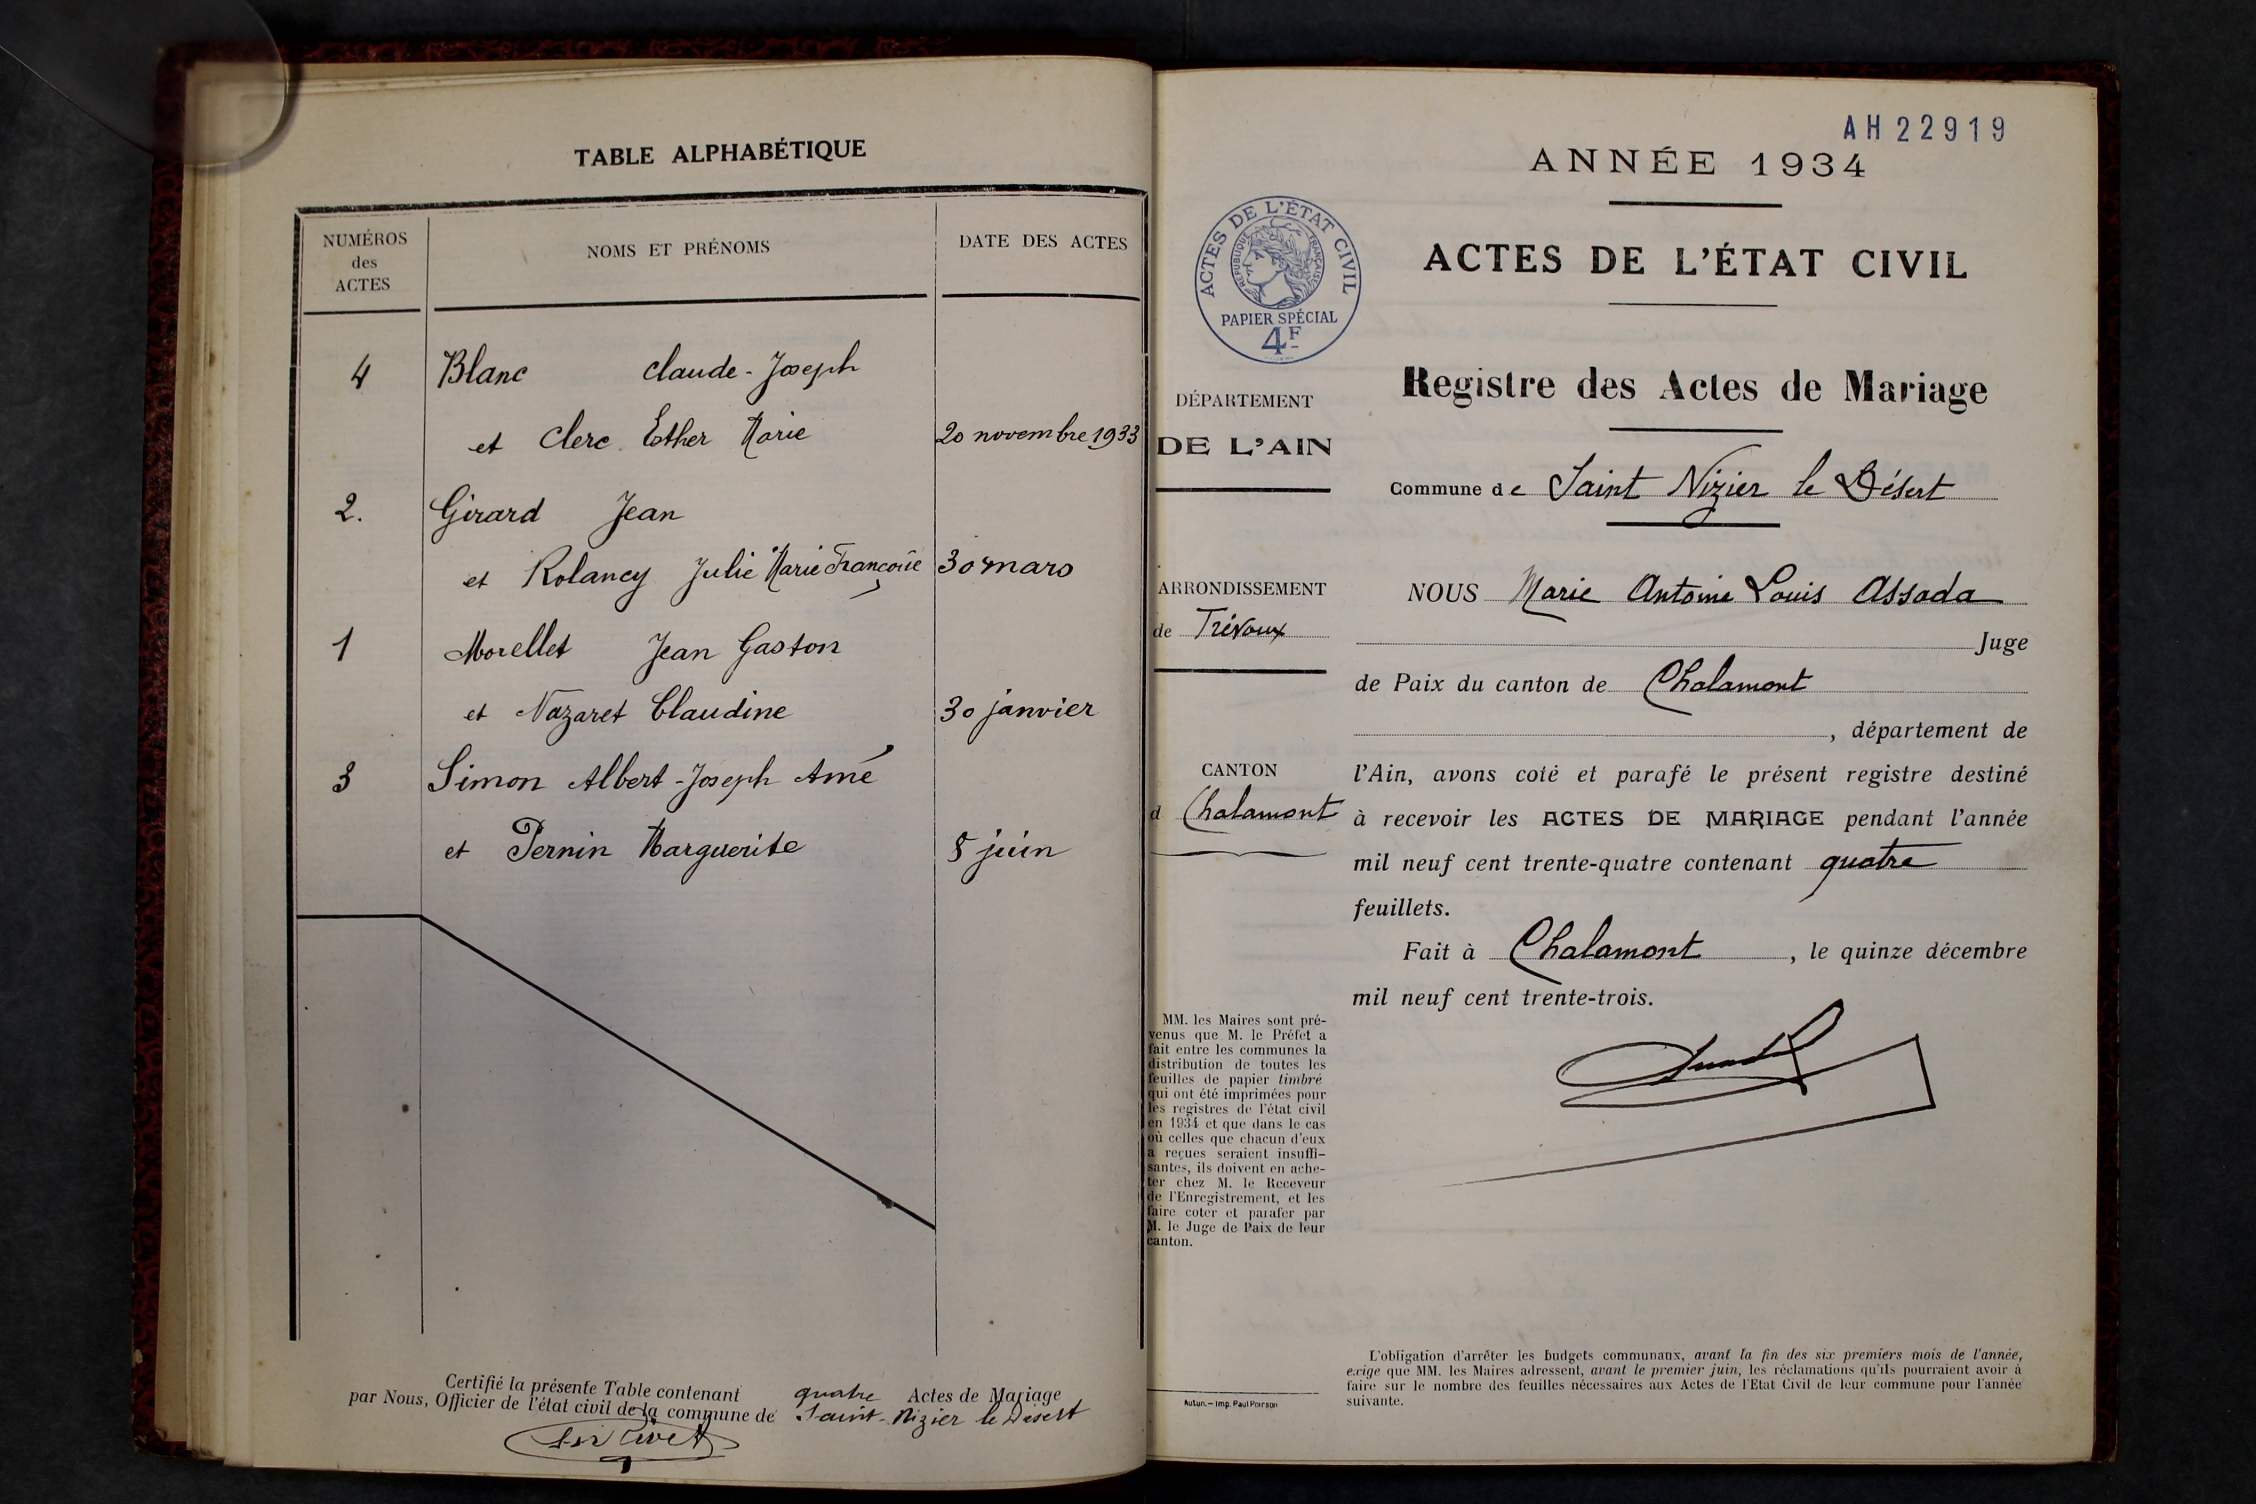 TABLE ALPHABÉTIQUE
NUMÉROS
des
ACTES
NOMS ET PRÉNOMS
DATE DES ACTES
4 Blanc Claude-Joseph
et Clerc Esther Marie 20 novembre 1933
2. Girard Jean
et Rolancy Julie Marie Françoise 30 mars
1 Morellet Jean Gaston
et Nazaret Claudine 30 janvier
3 Simon Albert-Joseph Amé
et Pernin Marguerite 8 juin
Certifié la présente Table contenant quatre Actes de Mariage
par Nous, Officier de l'état civil de la commune de Saint-Nizier le Désert
AH22919
ANNÉE 1934
ACTES DE L'ÉTAT CIVIL
RÉPUBLIQUE FRANÇAISE
PAPIER SPÉCIAL
4F
ACTES DE L'ÉTAT CIVIL
Registre des Actes de Mariage
Commune de Saint Nizier le Désert
DÉPARTEMENT
DE L'AIN
ARRONDISSEMENT
de Trévoux
CANTON
d Chalamont
MM. les Maires sont pré-
venus que M. le Préfet a
fait entre les communes la
distribution de toutes les
feuilles de papier timbré
qui ont été imprimées pour
les registres de l'état civil
en 1934 et que dans le cas
où celles que chacun d'eux
a reçues seraient insuffi-
santes, ils doivent en ache-
ter chez M. le Receveur
de l'Enregistrement, et les
faire coter et parafer par
M. le Juge de Paix de leur
canton.
Autun. — Imp. Paul Poirson
NOUS Marie Antoine Louis Assada
Juge
de Paix du canton de Chalamont
, département de
l'Ain, avons coté et parafé le présent registre destiné
à recevoir les ACTES DE MARIAGE pendant l'année
mil neuf cent trente-quatre contenant quatre
feuillets.
Fait à Chalamont, le quinze décembre
mil neuf cent trente-trois.
L'obligation d'arrêter les budgets communaux, avant la fin des six premiers mois de l'année,
exige que MM. les Maires adressent, avant le premier juin, les réclamations qu'ils pourraient avoir à
faire sur le nombre des feuilles nécessaires aux Actes de l'Etat Civil de leur commune pour l'année
suivante.